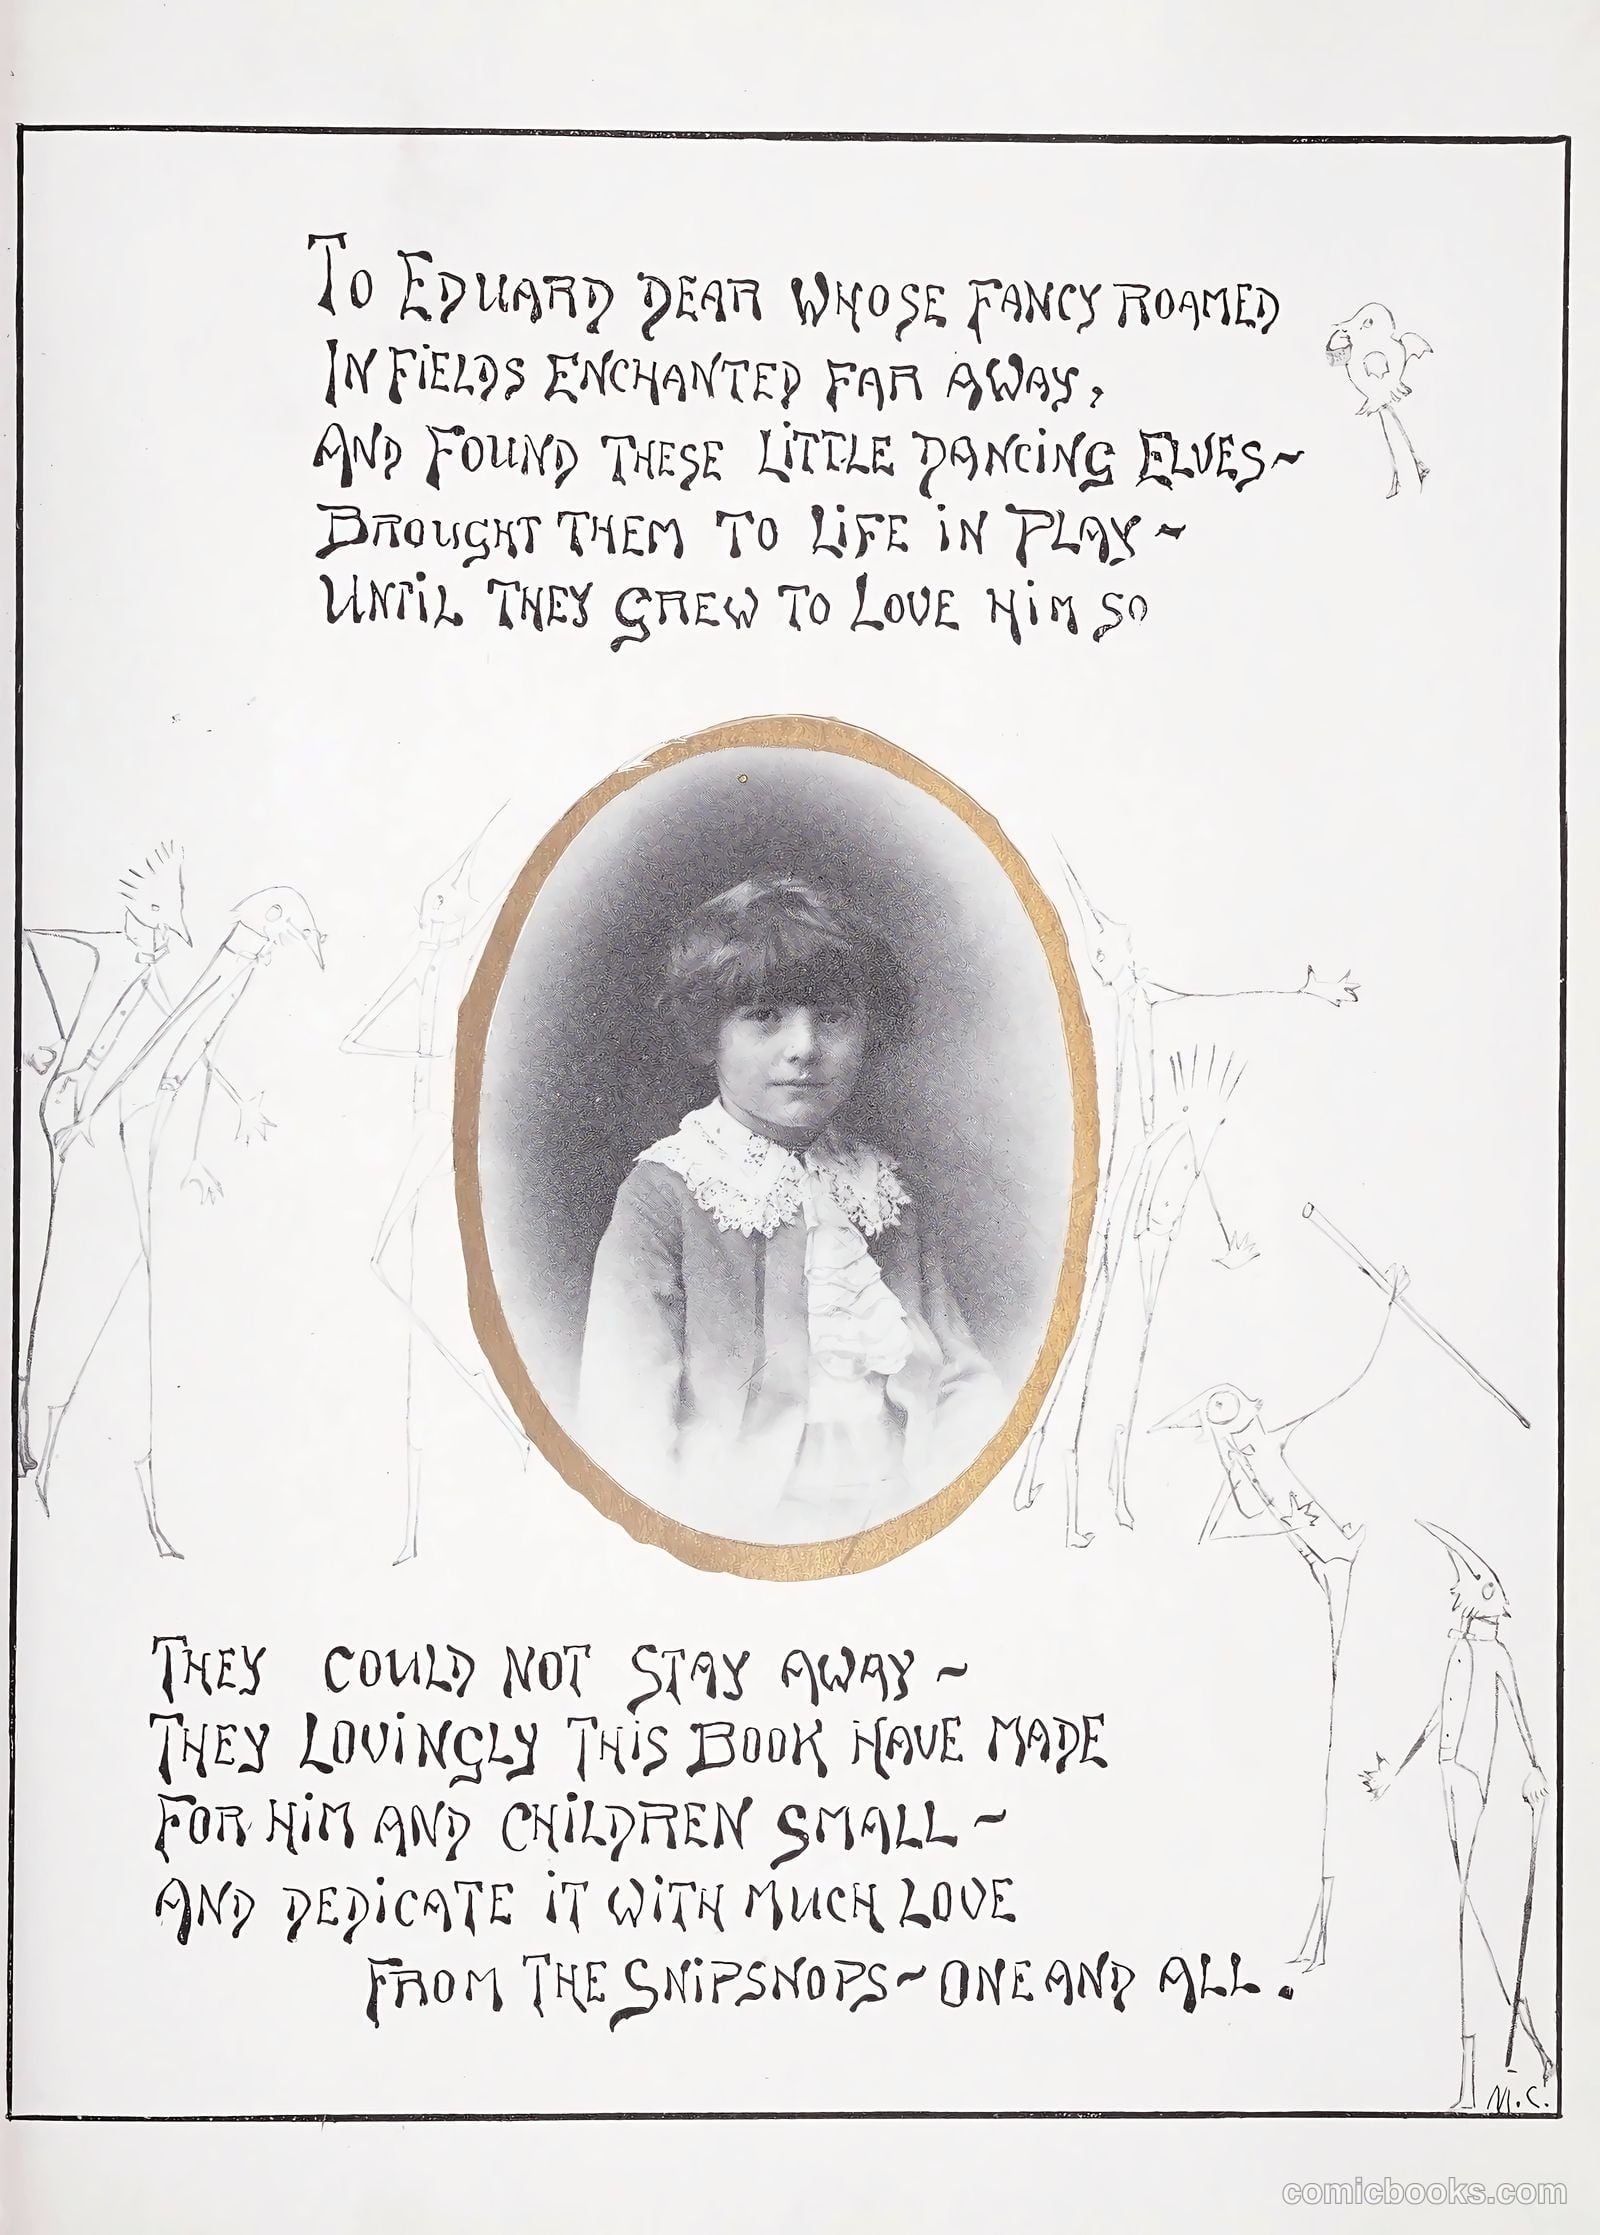 To Eduard dear whose fancy roamed
In fields enchanted far away,
And found these little dancing elves~
Brought them to life in play~
Until they grew to love him so
They could not stay away~
They lovingly this book have made
For him and children small~
And dedicate it with much love
From the Snipsnops~one and all.
M.C.
comicbooks.com